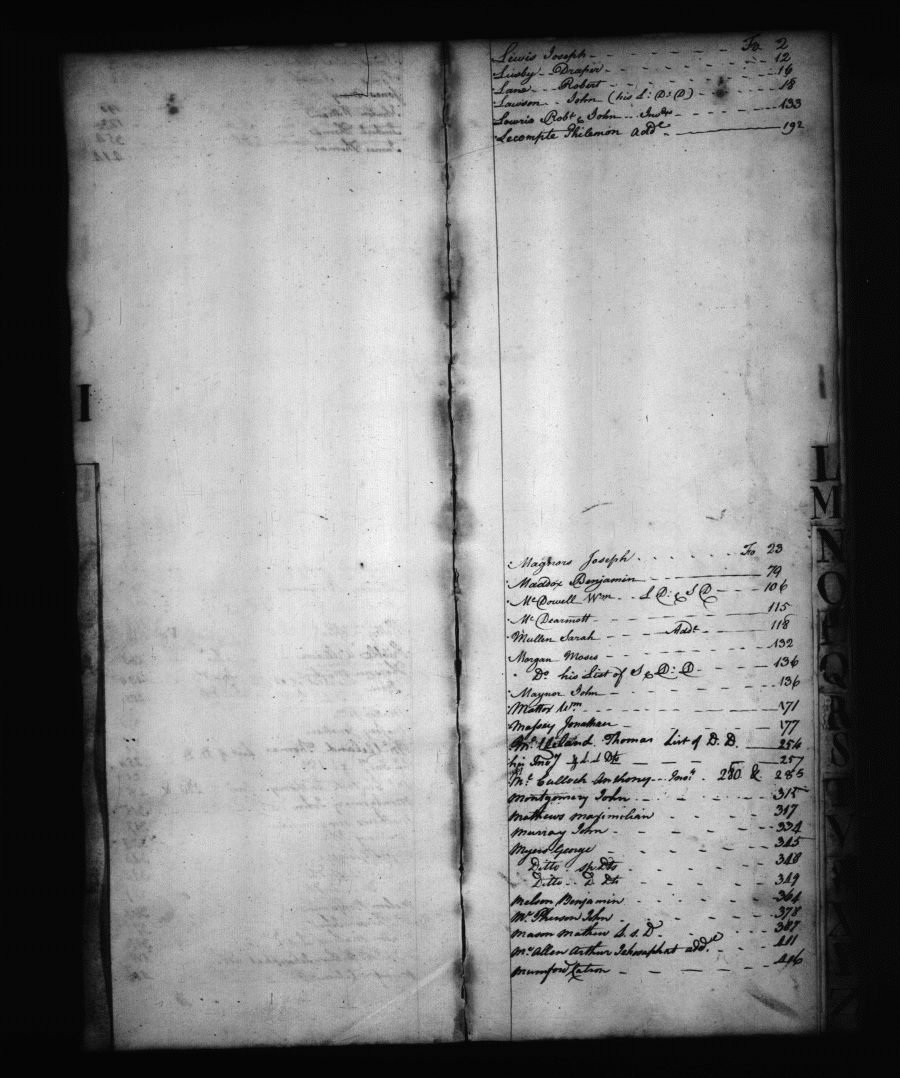 Lewis Joseph Fo 2
Lusby Draper 12
Lane Robert 16
Lawson John (his L: D: D) 18
Lowrie Robt & John Invty 133
Lecompte Philemon Adde 192
I
L
M
N
O
P
Q
R
S
T
V
X
Z
Joseph Fo 23
Maddox Benjamin 79
McDowell Wm L D: & S D 106
McDearmott 115
Mullen Sarah Addl 118
Morgan Moses 132
Do his List of S & D: D 136
Maynor John 136
Mattox Wm 171
Massey Jonathan 177
Thomas List of D. D. 254
his Invy & L L Dts 257
McCulloch Anthony Invy 280 & 285
Montgomery John 315
Mathews Maximilian 317
Murray John 334
Myers George 345
Ditto sp Dts 348
Ditto D Dts 349
Melson Benjamin 364
McPherson John 378
Mason Mathew L. s. D 387
McAllen Arthur Jehosaphat adde 411
Mumford 416